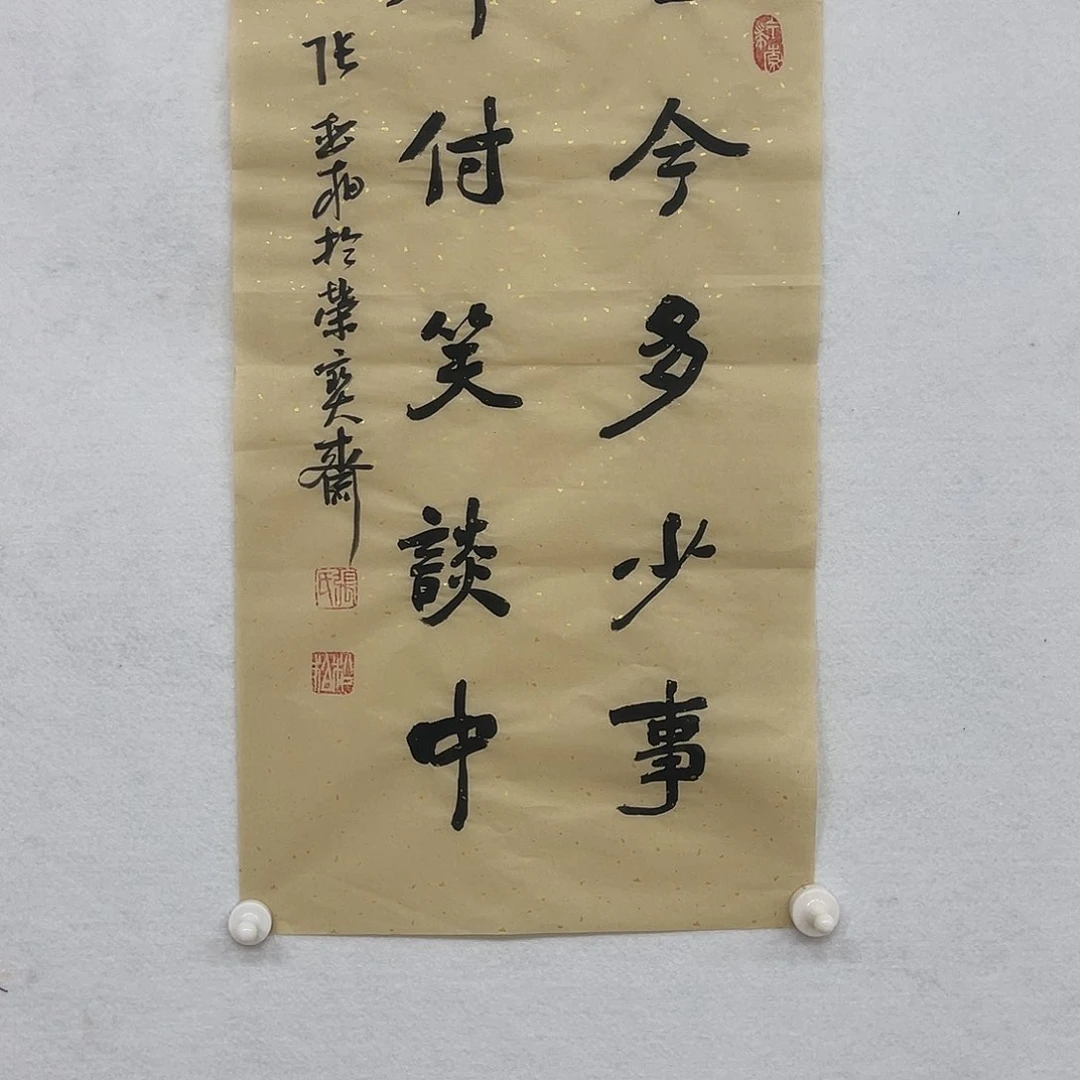 今多少事
付笑談中
張志和於榮寶齋
張氏